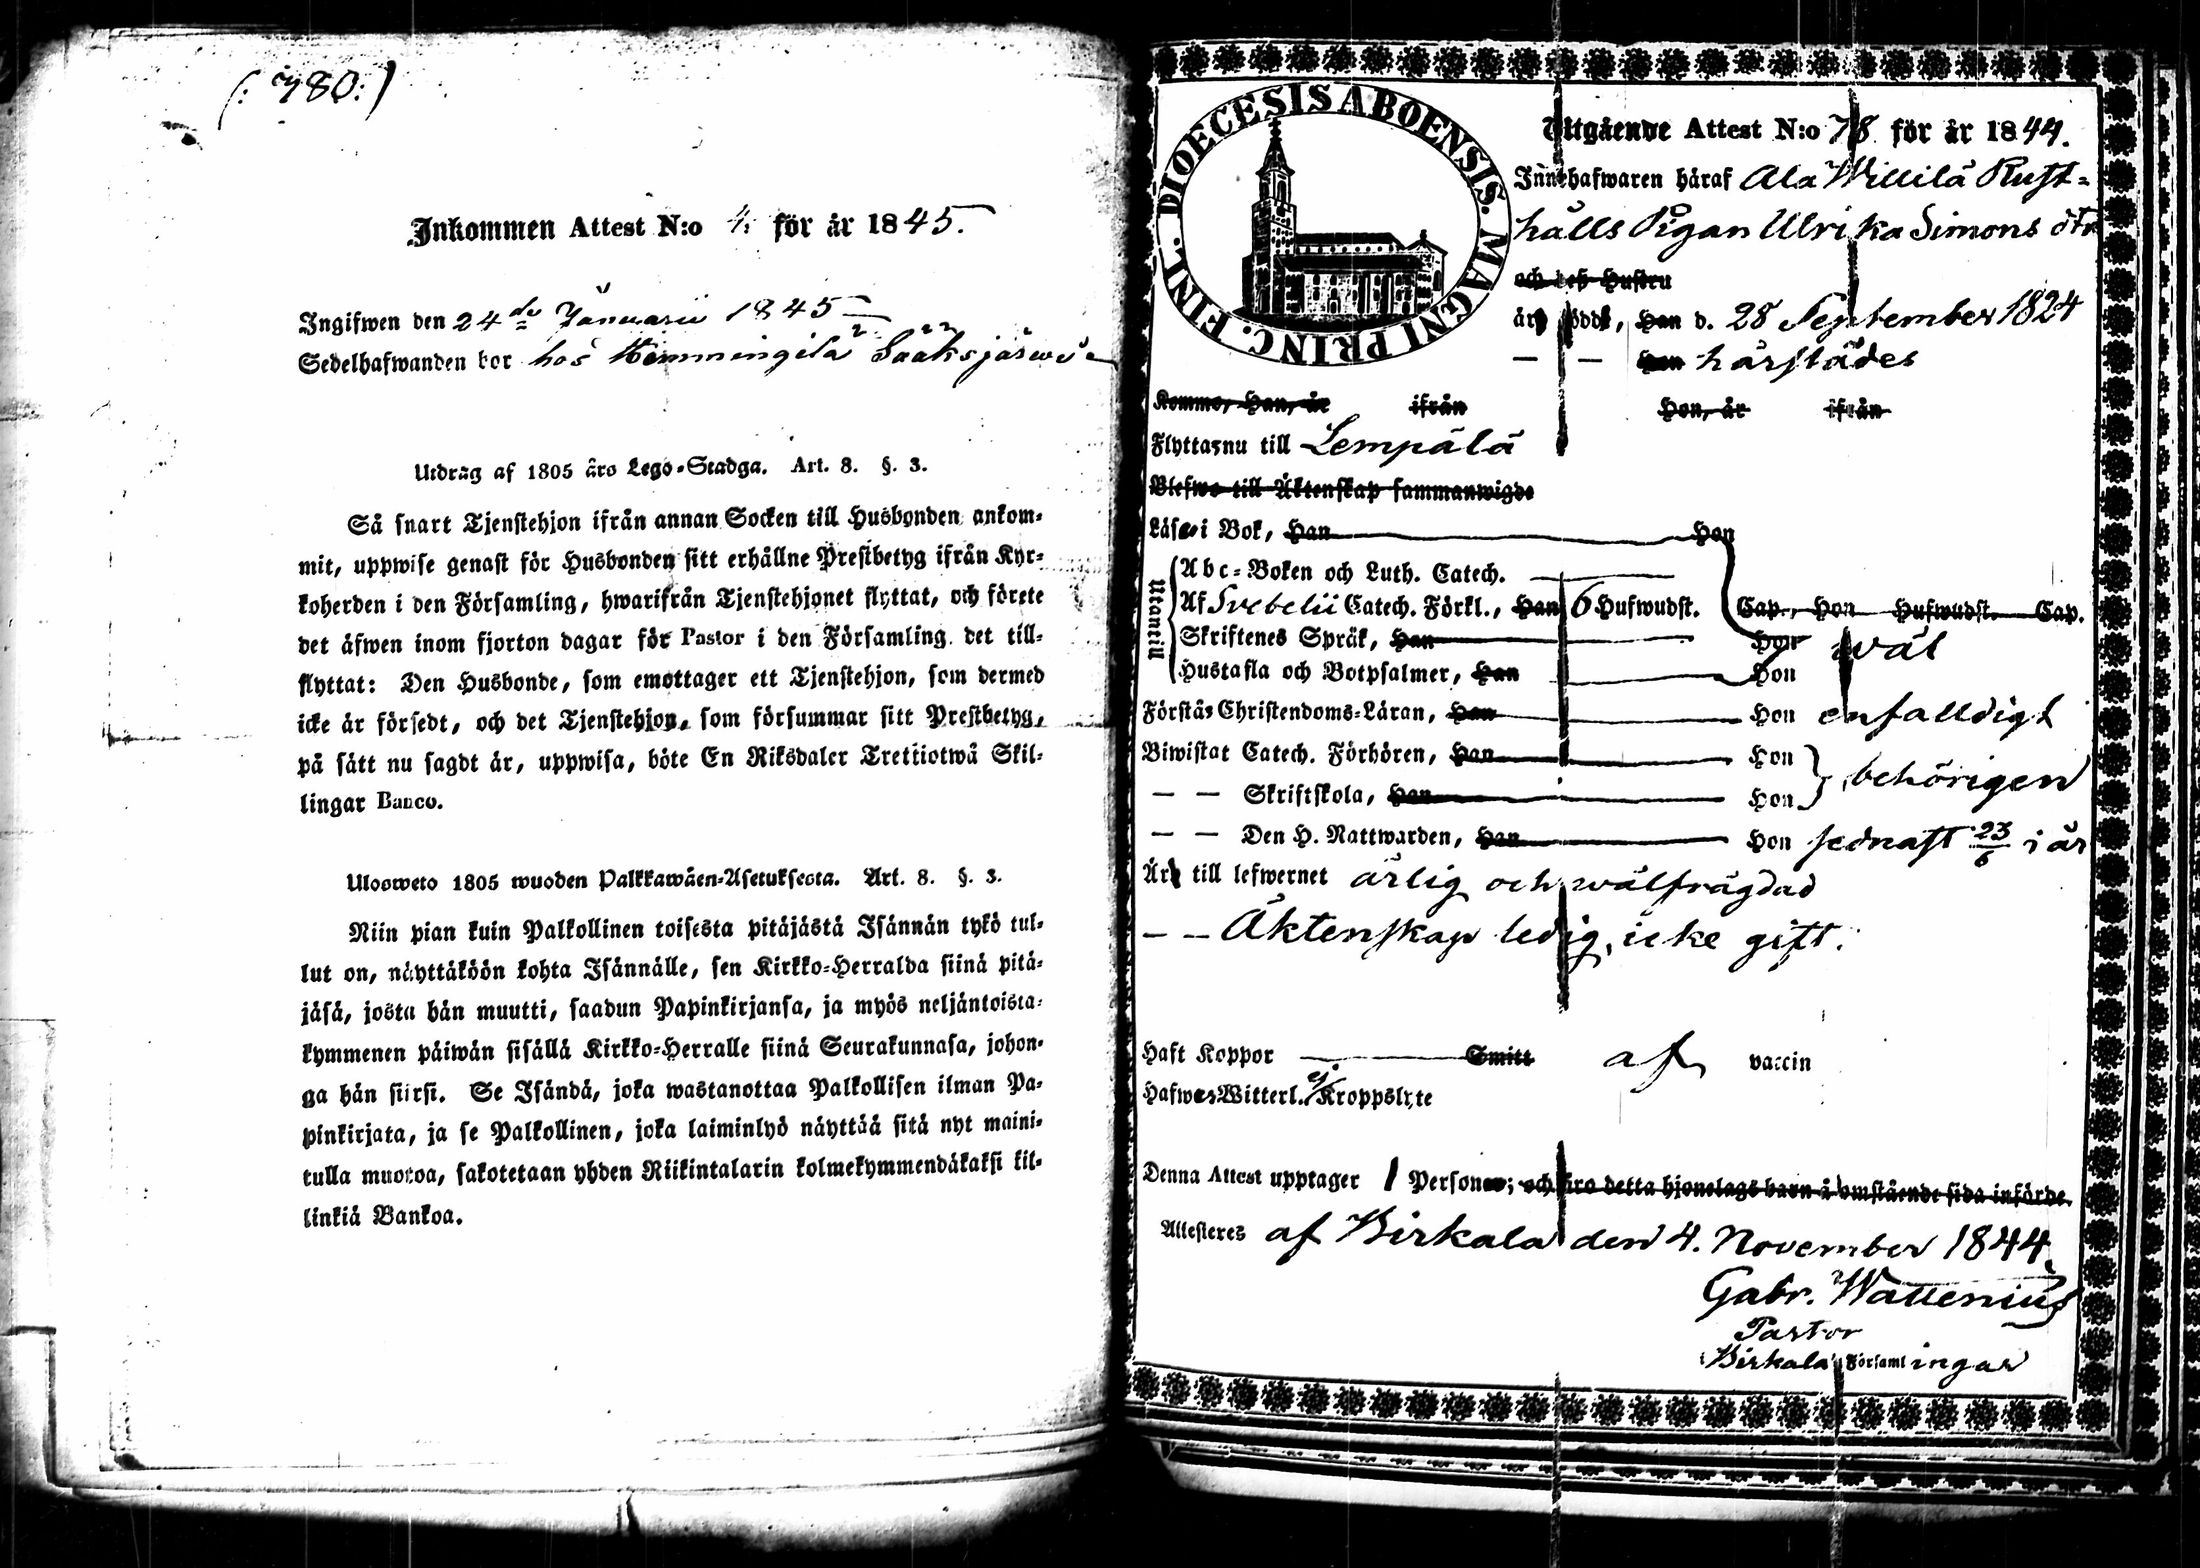 (: 780:)
Inkommen Attest N:o 4. för år 1845.
Ingifwen den 24de Januarii 1845
Sedelhafwanden bor hos Hemmingilä Sääksjärwi
Utdrag af 1805 åro Lego-Stadga. Art. 8. §. 3.
Så snart Tjenstehjon ifrån annan Socken till Husbonden ankom-
mit, uppwise genast för Husbonden sitt erhållne Prestbetyg ifrån Kyr-
koherden i den Församling, hwarifrån Tjenstehjonet flyttat, och förete
det äfwen inom fjorton dagar för Pastor i den Församling det till-
flyttat: Den Husbonde, som emottager ett Tjenstehjon, som dermed
icke är försedt, och det Tjenstehjon, som försummar sitt Prestbetyg,
på sätt nu sagdt är, uppwisa, böte En Riksdaler Trettiotwå Skil-
lingar Banco.
Ulosweto 1805 wuoden Palkkawäen-Asetuksesta. Art. 8. §. 3.
Niin pian kuin Palkollinen toisesta pitäjästä Isännän tykö tul-
lut on, näyttäköön kohta Isännälle, sen Kirkko-Herralda siinä pitä-
jäsä, josta hän muutti, saadun Papinkirjansa, ja myös neljäntoista-
kymmenen päiwän sisällä Kirkko-Herralle siinä Seurakunnasa, johon-
ga hän siirsi. Se Isändä, joka wastanottaa Palkollisen ilman Pa-
pinkirjata, ja se Palkollinen, joka laiminlyö näyttää sitä nyt maini-
tulla muotoa, sakotetaan yhden Riikintalarin kolmekymmendäkaksi kil-
linkiä Bankoa.
FINL. DIOECESIS ABOENSIS. MAGNI PRINC.
Utgående Attest N:o 78 för år 1844.
Innehafwaren häraf Ala Willilä Rust-
hålls Pigan Ulrika Simons dtr
och dess Hustru
är födde, Han d. 28 September 1824
— — Hon härstädes
Komme, Han, år ifrån Hon, år ifrån
Flyttar nu till Lempälä
Blefwo till Äktenskap sammanwigde
Läser i Bok, Han Hon
Utantill
Abc-Boken och Luth. Catech.
Af Svebelii Catech. Förkl., Han 6 Hufwudst. Cap., Hon Hufwudst. Cap.
Skriftenes Språk, Han Hon wäl
Hustafla och Botpsalmer, Han Hon
Förstår Christendoms-Läran, Han Hon enfalldigt
Biwistat Catech. Förhören, Han Hon
— — Skriftskola, Han Hon behörigen
— — Den H. Nattwarden, Han Hon sednast 23/6 i år
Är till lefwernet ärlig och wälfrägdad
— — Äktenskap ledig, icke gift.
Haft Koppor Smitt af vaccin
Hafwer Witterl. ej Kroppslyte
Denna Attest upptager 1 Personer; och äro detta hjonelags barn å omstående sida införde.
Attesteres af Birkala den 4. November 1844.
Gabr. Wallenius
Pastor
Birkala Församlingar